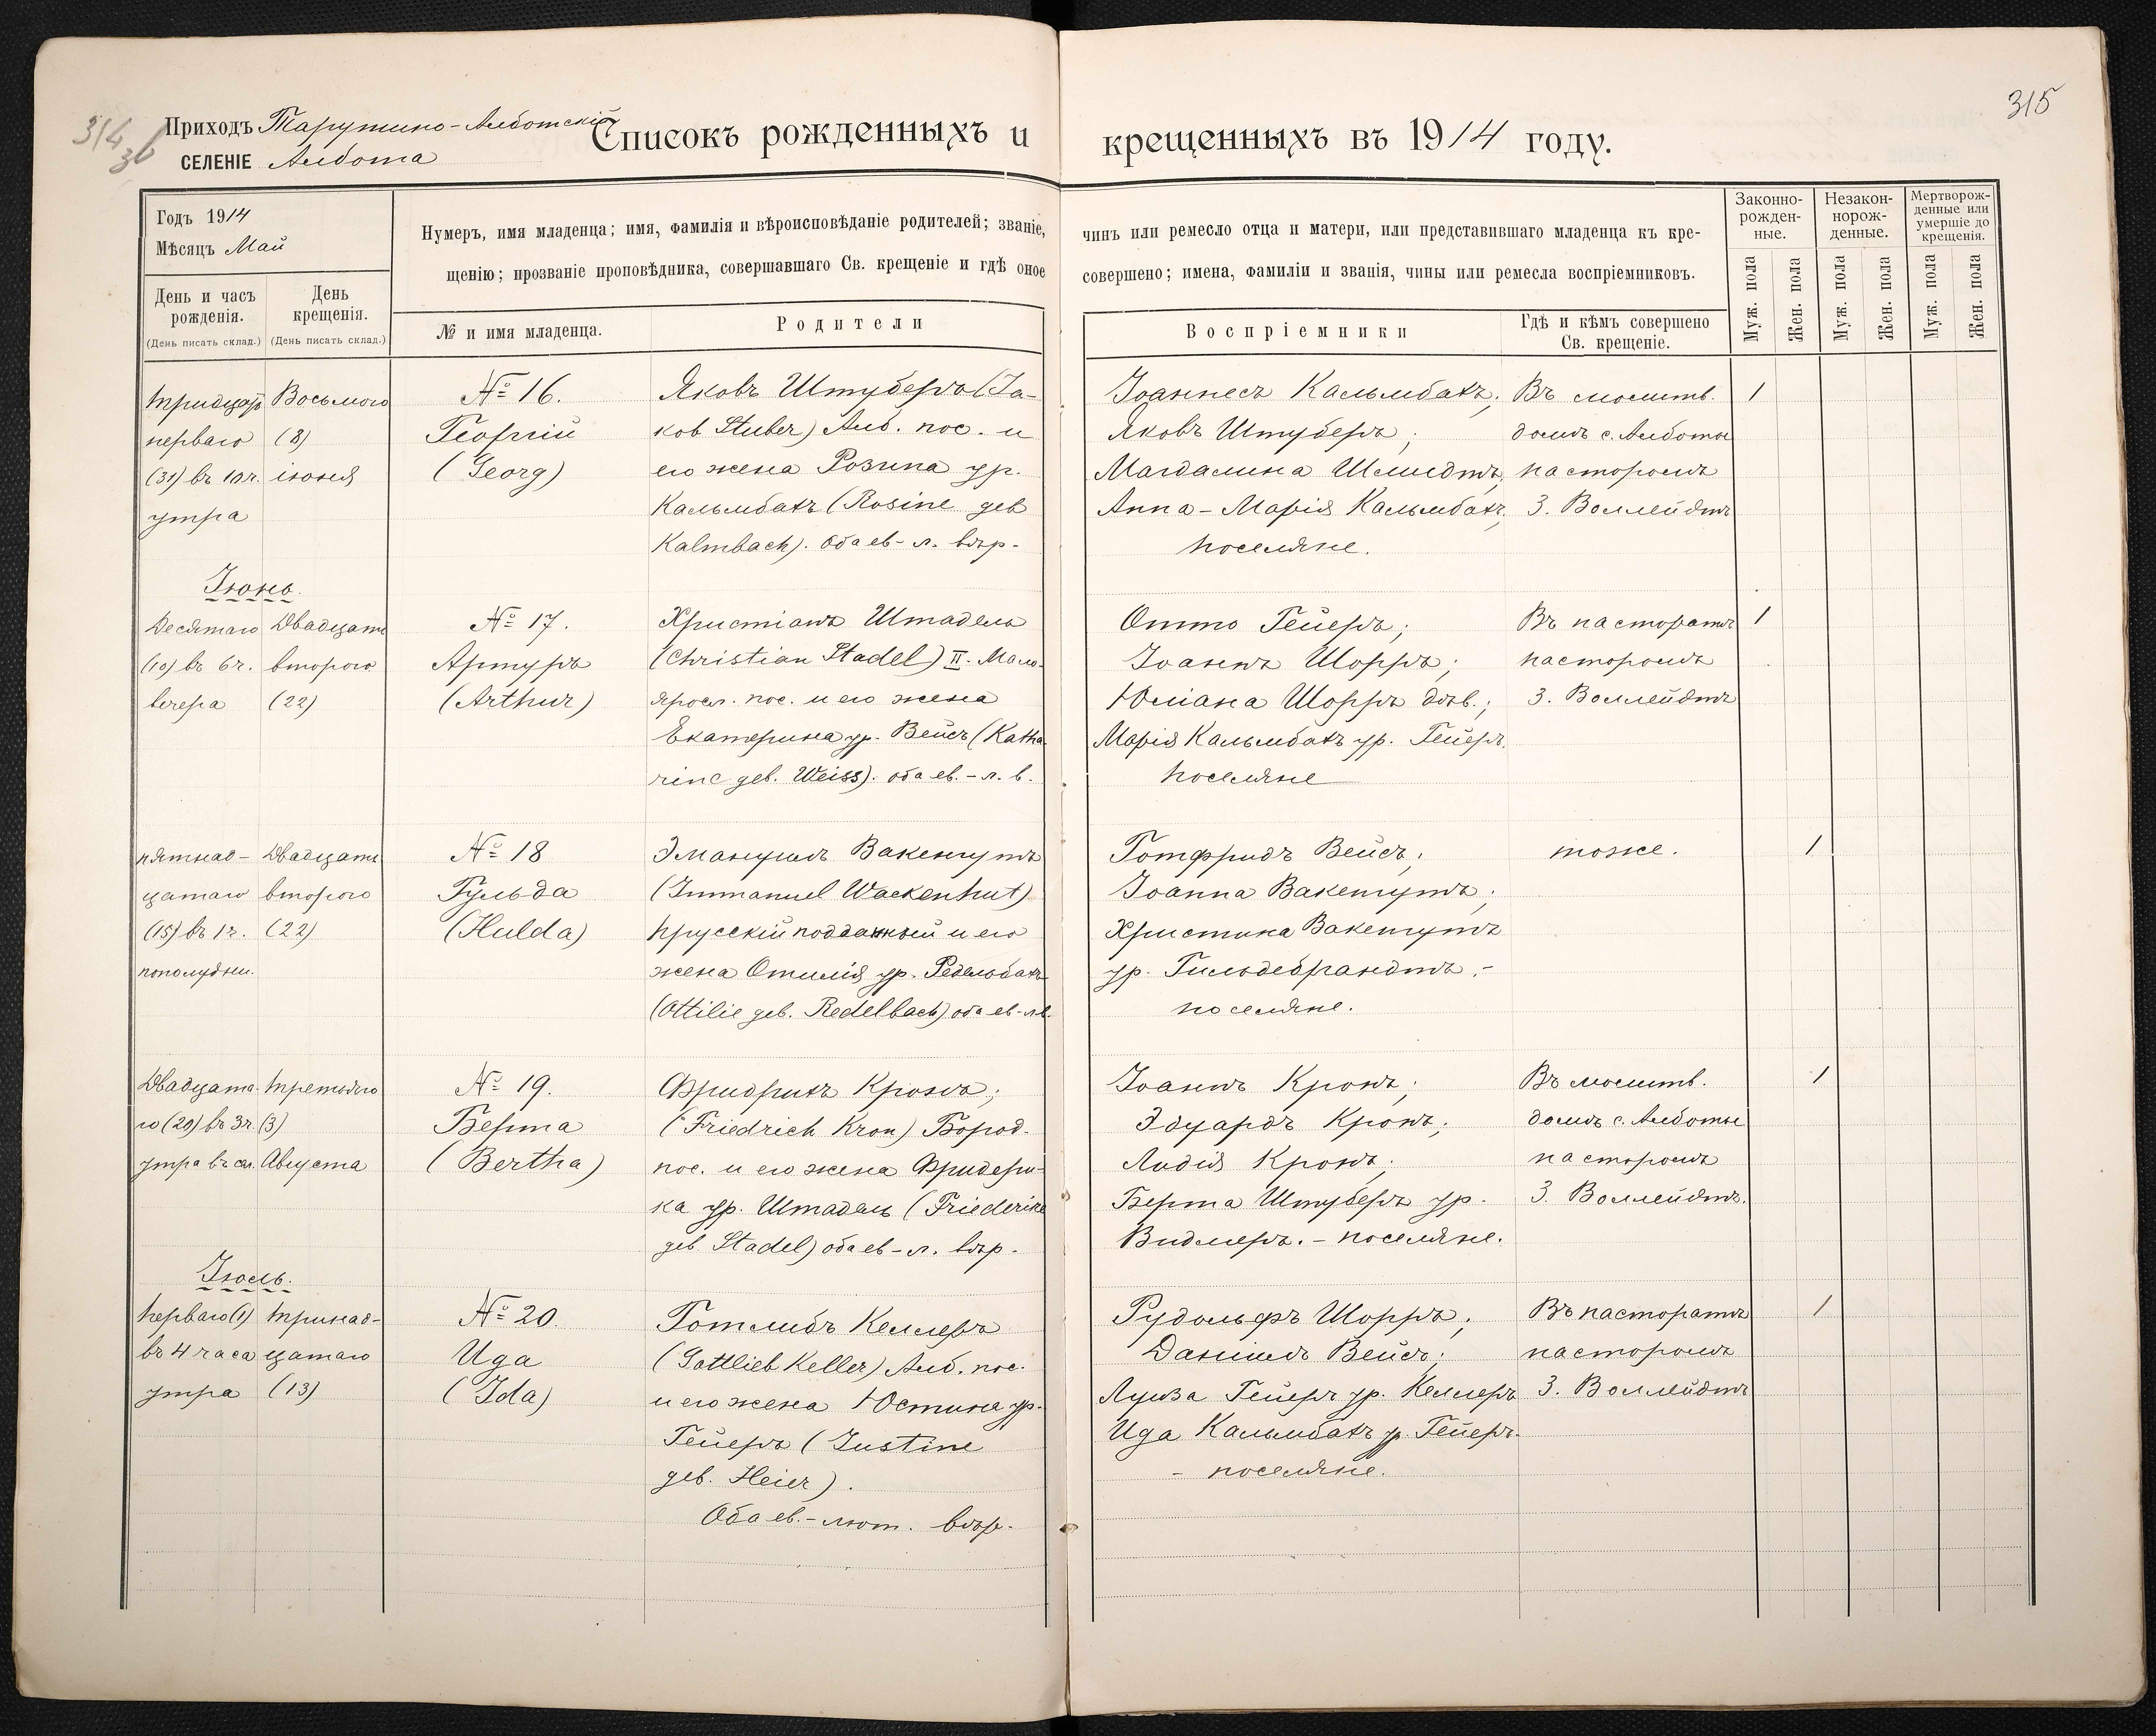 314
315
Приходъ Тарутино-Алботскій
СЕЛЕНІЕ Албота
Списокъ рожденныхъ и крещенныхъ въ 1914 году.
Годъ 1914
Мѣсяцъ Май
Нумеръ, имя младенца; имя, фамилія и вѣроисповѣданіе родителей; званіе, чинъ или ремесло отца и матери, или представившаго младенца къ кре-
щенію; прозваніе проповѣдника, совершавшаго Св. крещеніе и гдѣ оное совершено; имена, фамиліи и званія, чины или ремесла воспріемниковъ.
Законно-
рожден-
ные.
Незакон-
норож-
денные.
Мертворож-
денные или
умершіе до
крещенія.
Муж. пола
Жен. пола
Муж. пола
Жен. пола
Муж. пола
Жен. пола
День и часъ
рожденія.
(День писать склад.)
День
крещенія.
(День писать склад.)
№ и имя младенца.
Родители
Воспріемники
Гдѣ и кѣмъ совершено
Св. крещеніе.
тридцать
перваго
(31) въ 10 ч.
утра
Восьмого
(8)
іюня
№ 16.
Георгій
(Georg)
Яковъ Штуберъ (Ja-
kob Stuber) Алб. пос. и
его жена Розина ур.
Кальмбахъ (Rosine geb
Kalmbach). Оба ев-л. вѣр.
Іоаннесъ Кальмбахъ;
Яковъ Штуберъ;
Магдалина Шмидтъ,
Анна-Марія Кальмбахъ,
поселяне.
Въ молитв.
домѣ с. Алботы
пасторомъ
З. Воллейдтъ
1
Іюнь.
Десятаго
(10) въ 6 ч.
вечера
Двадцать
второго
(22)
№ 17.
Артуръ
(Arthur)
Христіанъ Штадель
(Christian Stadel) II. Мало-
яросл. пос. и его жена
Екатерина ур. Вейсъ (Katha-
rine geb. Weiss). оба ев.-л. в.
Отто Гейеръ;
Іоаннъ Шорръ;
Юліана Шорръ дѣв.;
Марія Кальмбахъ ур. Гейеръ.
поселяне
Въ пасторатѣ
пасторомъ
З. Воллейдтъ
1
пятнад-
цатаго
(15) въ 1 ч.
пополудни.
Двадцать
второго
(22)
№ 18
Гульда
(Hulda)
Эмануилъ Вакенгутъ
(Immanuel Wackenhut)
прусскій подданный и его
жена Отилія ур. Редельбахъ
(Ottilie geb. Redelbach) оба ев-л.в.
Готфридъ Вейсъ;
Іоанна Вакенгутъ;
Христина Вакенгутъ
ур. Гильдебрандтъ.-
поселяне.
тоже.
1
Двадцата-
го (20) въ 3 ч.
утра въ сл.
третьяго
(3)
Августа
№ 19.
Берта
(Bertha)
Фридрихъ Кронъ;
(Friedrich Kron) Бород.
пос. и его жена Фридери-
ка ур. Штадель (Friederike
geb Stadel) оба ев-л. вѣр.
Іоаннъ Кронъ;
Эдуардъ Кронъ;
Лидія Кронъ;
Берта Штуберъ ур.
Видмеръ.- поселяне.
Въ молитв.
домѣ с. Алботы
пасторомъ
З. Воллейдтъ.
1
Іюль.
перваго (1)
въ 4 часа
утра
тринад-
цатаго
(13)
№ 20.
Ида
(Ida)
Готлибъ Келлеръ
(Gottlieb Keller) Алб. пос.
и его жена Юстина ур.
Гейеръ (Justine
geb. Heier).
Оба ев.-лют. вѣр.
Рудольфъ Шорръ;
Даніилъ Вейсъ;
Луиза Гейеръ ур. Келлеръ
Ида Кальмбахъ ур. Гейеръ.
- поселяне.
Въ пасторатѣ
пасторомъ
З. Воллейдтъ
1